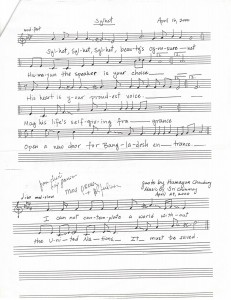 Sylhet
April 16, 2000
med-fast
Syl-het, Syl-het, Syl-het, beau-ty's cy-no-sure—
Hu-ma-yun the speaker is your choice
His heart is y-our proud-est voice
May his life's self-giv-ing fra—grance
Open a new door for Bang-la-desh en—trance
med-slow
I can not con-tem-plate a world with-out
the U-ni-ted Na-tions It must be saved
quote by Humayun Choudhury
Music by Sri Chinmoy
April 27, 2000